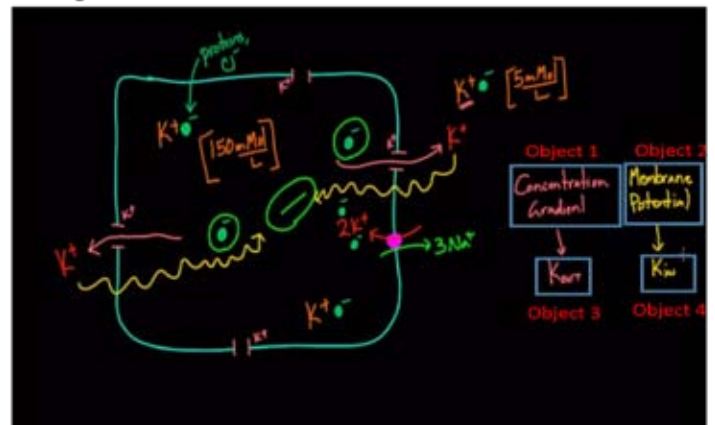 proteins,
Cl-
K+
K+
[150 mMol
L]
K+
K+ [5 mMol
L]
K+
K+
Object 1
Object 2
Concentration
Gradient
Membrane
Potential
K+
K+
2K+
3Na+
Kout
Kin
Object 3
Object 4
K+
K+